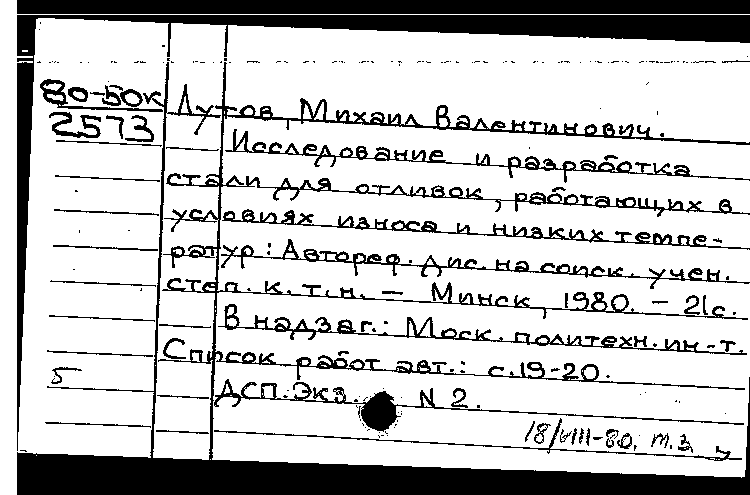 80-50к
2573
Лутов, Михаил Валентинович.
Исследование и разработка
стали для отливок, работающих в
условиях износа и низких темпе-
ратур: Автореф. дис. на соиск. учен.
степ. к.т.н. — Минск, 1980. – 21с.
В надзаг.: Моск. политехн. ин-т.
Список работ авт.: с.19-20.
5
ДСП. Экз. N 2.
18/VIII-80. т.з.